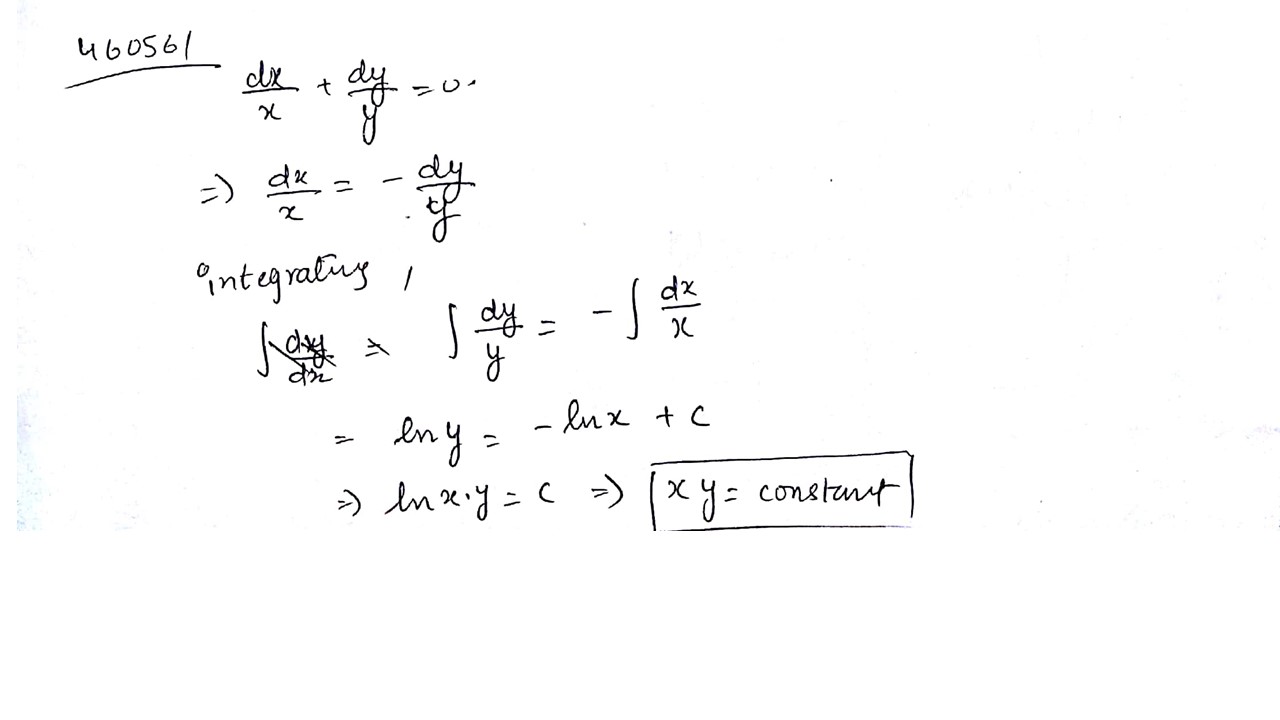 460561
dx/x + dy/y = 0.
=> dx/x = - dy/y
integrating,
∫ dy/dx => ∫ dy/y = - ∫ dx/x
= ln y = - ln x + c
=> ln x·y = c => xy = constant